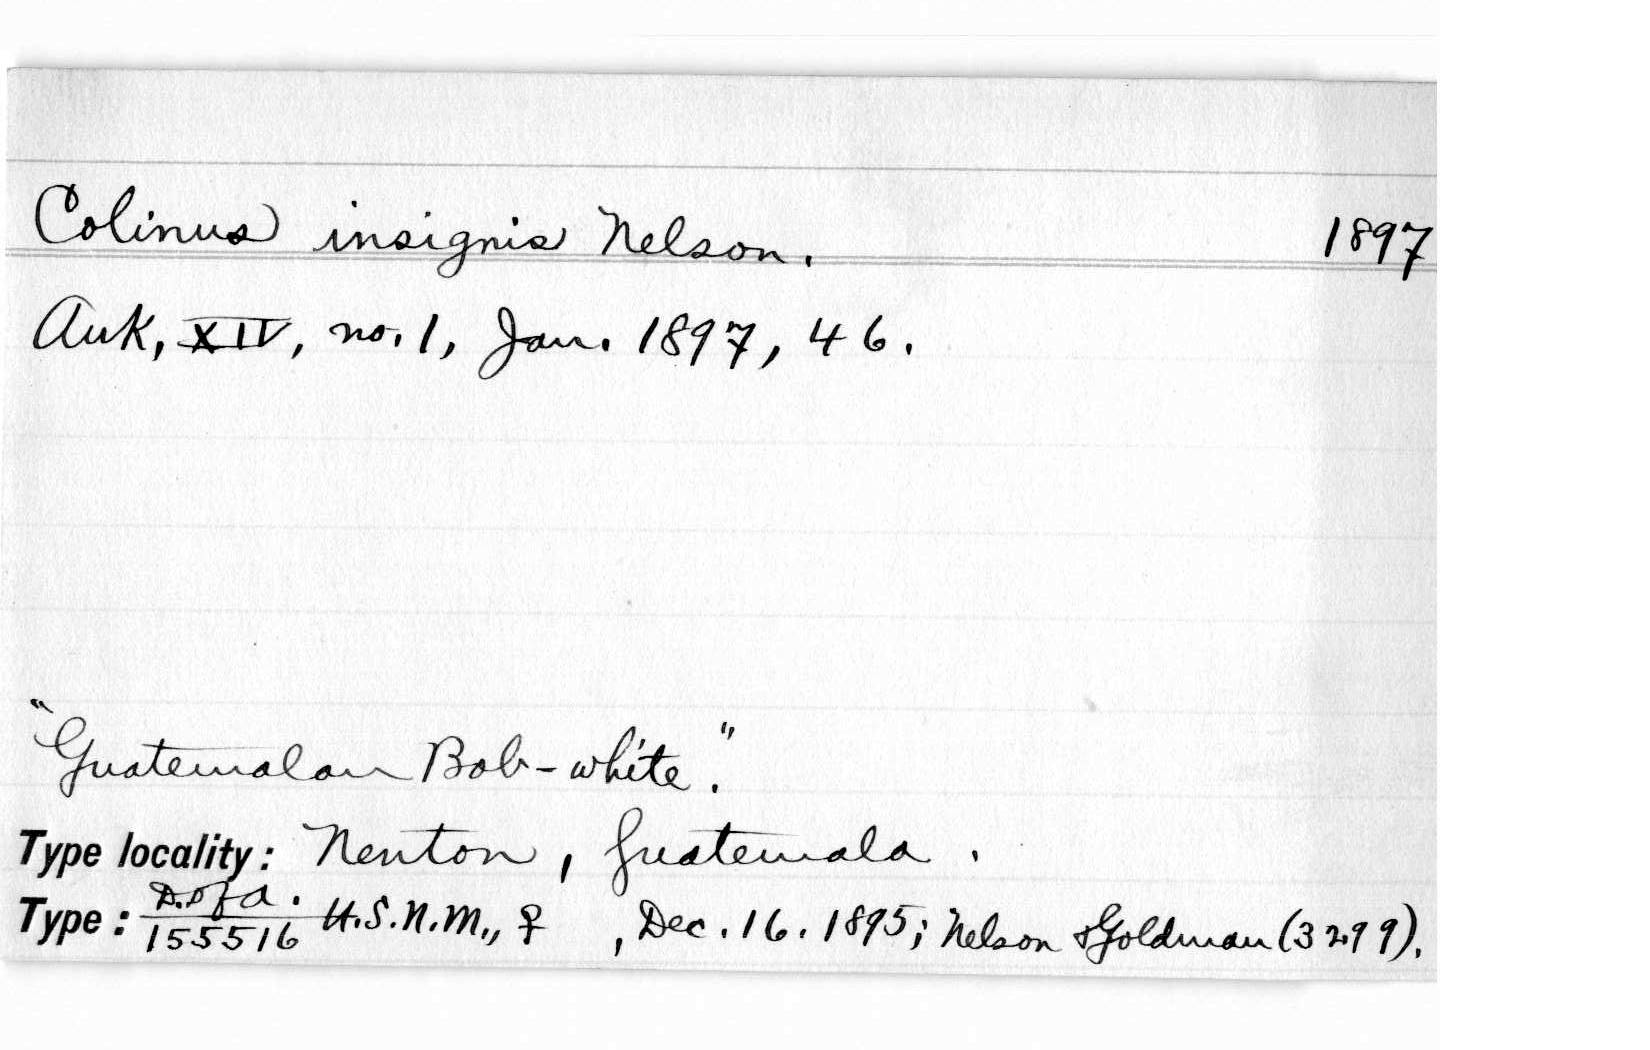 Colinus insignis Nelson. 1897
Auk, XIV, no. 1, Jan. 1897, 46.
"Guatemalan Bob-white."
Type locality: Nenton, Guatemala.
Type: D. of A. 155516 U.S.N.M., ♀, Dec. 16. 1895; Nelson & Goldman (3299).